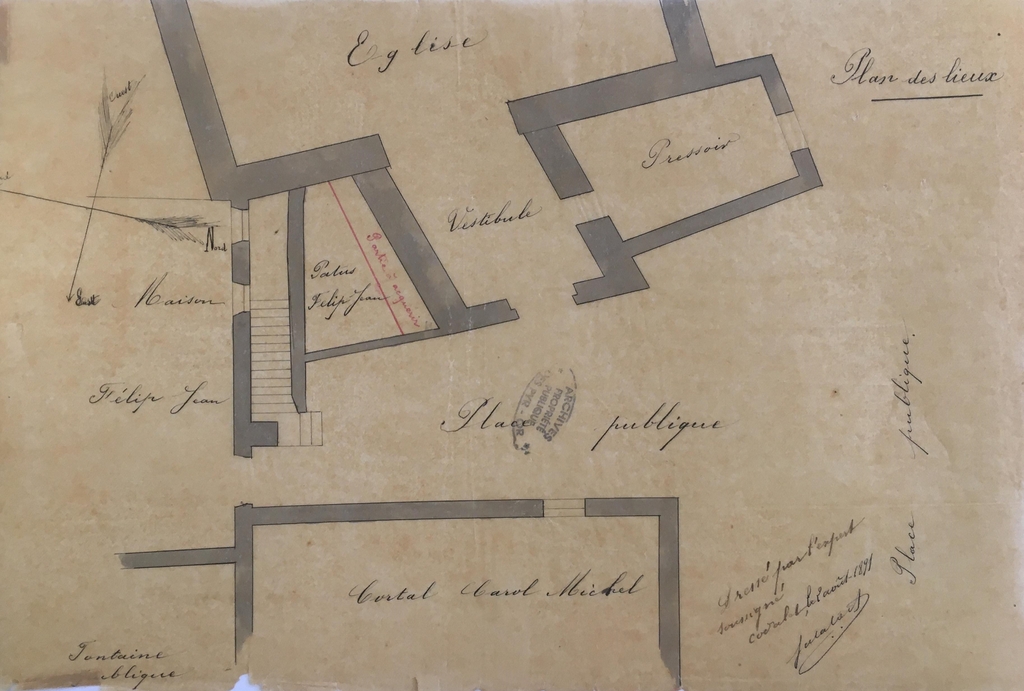 Plan des lieux
Eglise
Ouest
Nord
Pressoir
Vestibule
Patus
Félip Jean
Partie à acquérir
Maison
Félip Jean
Place publique
ARCHIVES
PROPRIÉTÉ
PUBLIQUE
Place publique
Cortal Carol Michel
Dressé par l'expert
soussigné
août 1891
Fontaine
blique